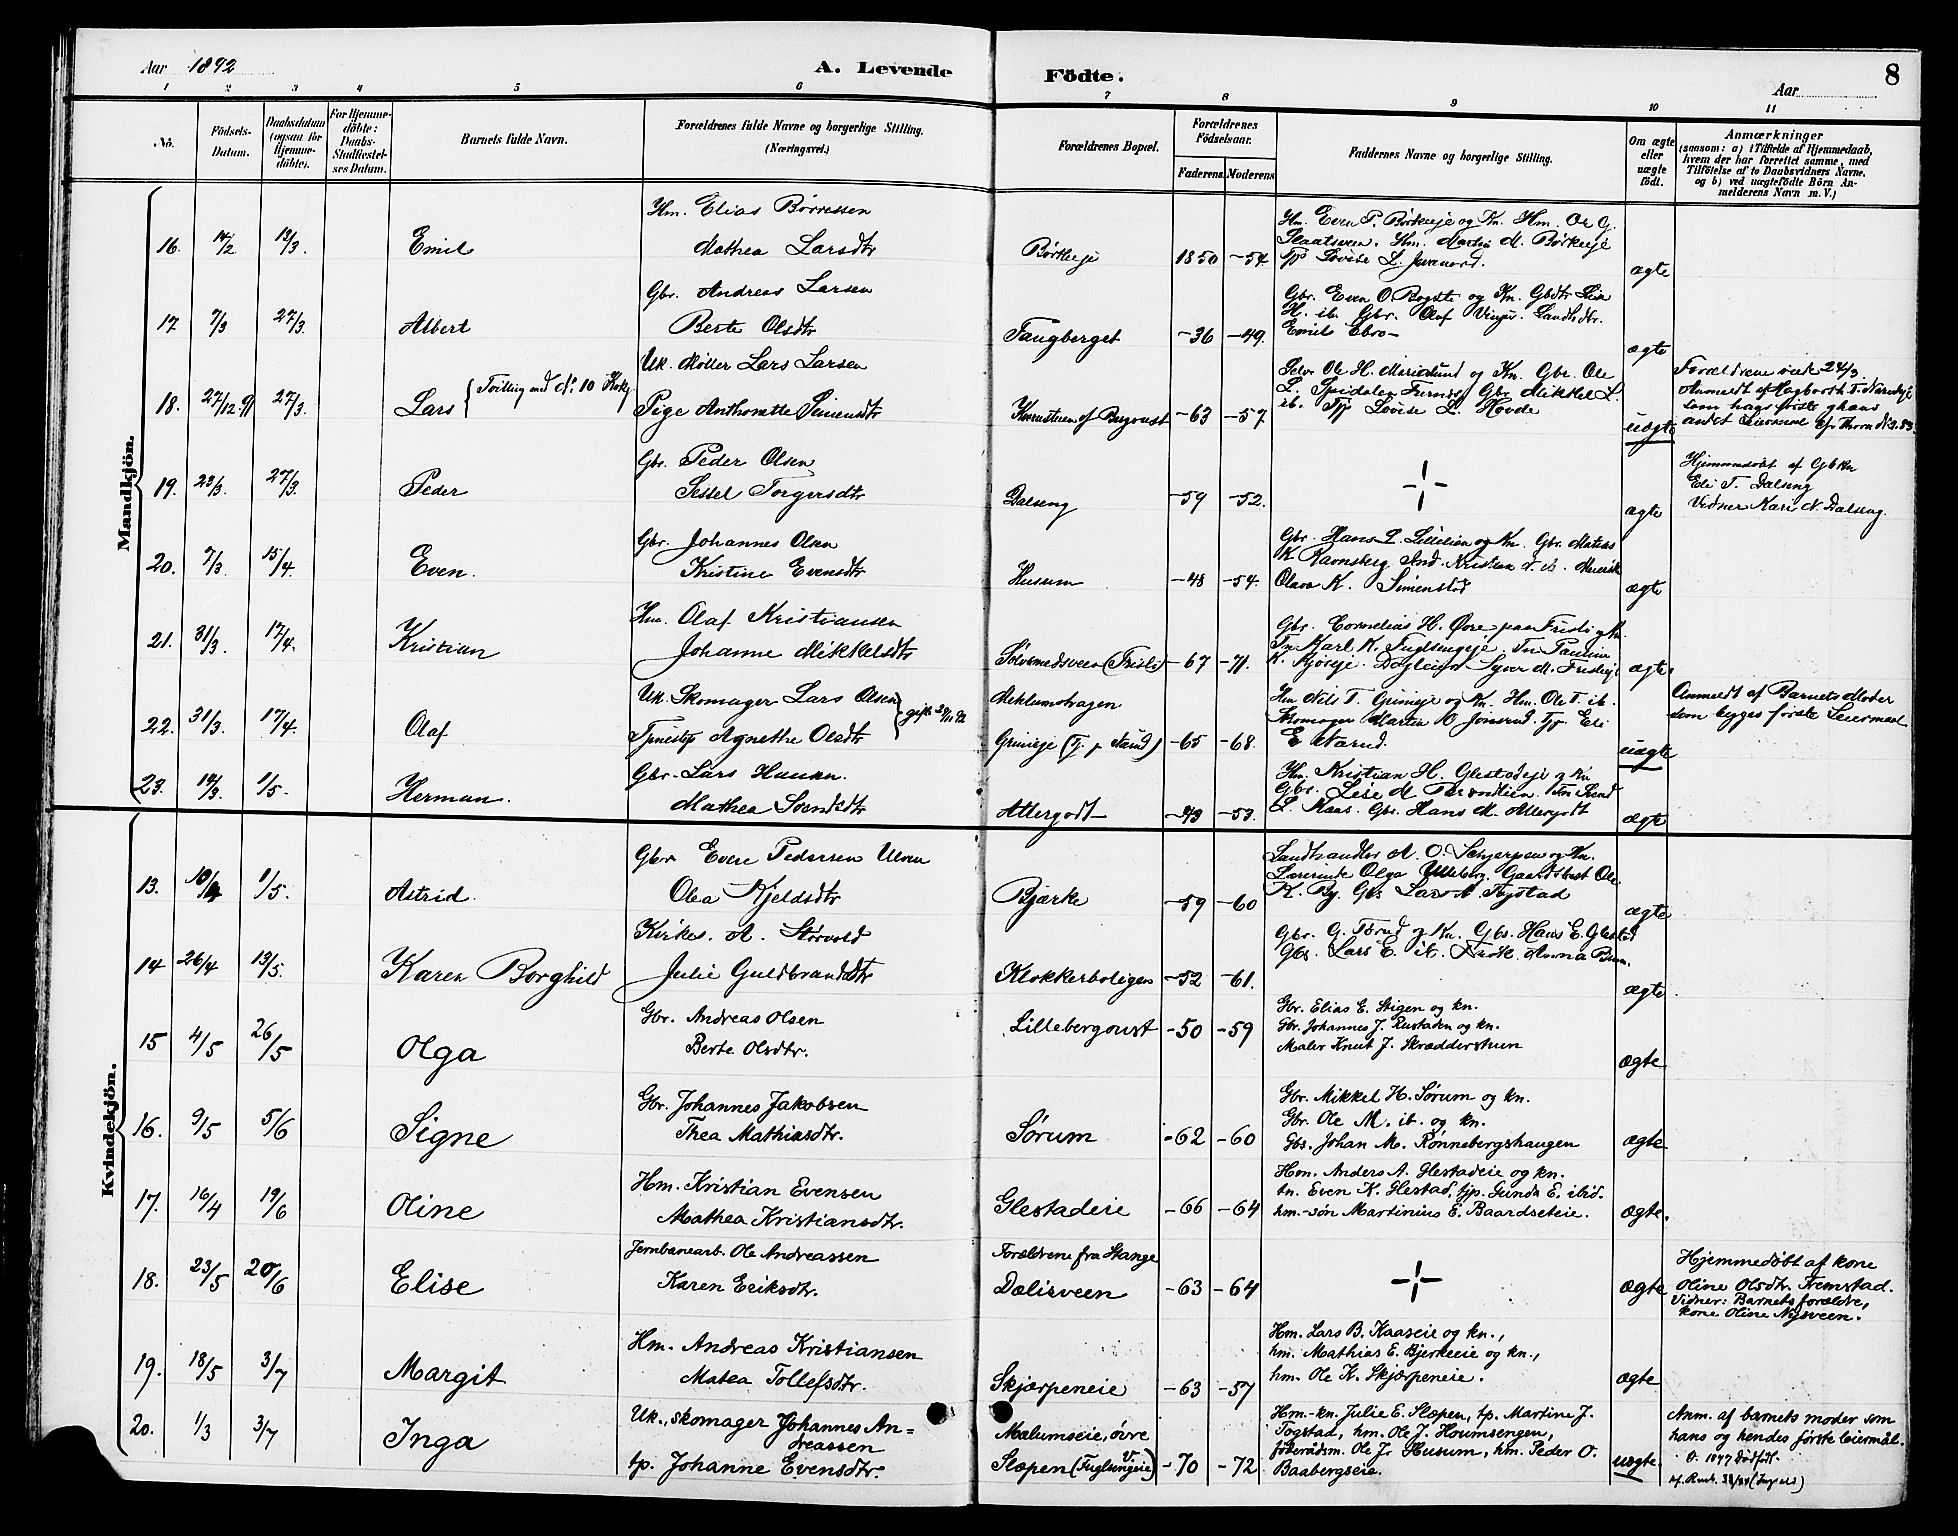 Aar 1892
A. Levende Födte.
8
Aar
1 2 3 4 5 6 7 8 9 10 11
No.
Födsels-Datum.
Daabsdatum (ogsaa for Hjemme-döbte).
For Hjemme-döbte: Daabs-Stadfæstel-ses Datum.
Barnets fulde Navn.
Forældrenes fulde Navne og borgerlige Stilling.
(Næringsvei.)
Forældrenes Bopæl.
Forældrenes Födselsaar.
Faderens. Moderens.
Faddernes Navne og borgerlige Stilling.
Om ægte eller uægte födt.
Anmærkninger
(saasom: a) i Tilfælde af Hjemmedaab,
hvem der har forrettet samme, med
Tilföielse af to Daabsvidners Navne,
og b) ved uægtefödte Börn An-
melderens Navn m. V.)
Mandkjön.
16. 14/2 13/3. Emil
Hm. Elias Børresen
Mathea Larsdtr
Børkeeje 1850 -54.
Hm. Even P. Børkeeje og Kn. Hm. Ole G.
Slaatsveen. Hm. Martin M. Børkeeje
Tp Lovise L.
ægte
17. 7/3 27/3. Albert
Gbr. Andreas Larsen
Berte Olsdtr
Taugberget -36 -49.
Gbr. Even O. og Kn. Gbdtr Lise
H. ib. Gbr. Olaf
Emil
ægte
18. 27/12 91 27/3. Lars { Tvilling med No. 10 Kvkj
Uk. Møller Lars Larsen
Pige Anthonette Simensdtr
af Bergqvist -63 -57.
Selv. Ole H. Marielund og Kn. Gbr. Ole
L. Gbr Mikkel L.
ib. Tp Lovise L. Hovde
uægte
Forældrene viede 24/3.
Anmeldt af
som hags første & hans
andet Leiermaal
19. 23/3. 27/3. Peder
Gbr. Peder Olsen
Sessel Torgersdtr
Dalseng -59 -52.
ægte
Hjemmedøbt af Gbkn
Eli T. Dalseng
Vidner Kari N. Dalseng.
20. 7/3. 15/4. Even.
Gbr. Johannes Olsen
Kristine Evensdtr
Husum -48 -54.
Gbr. Hans L. Lillelien og Kn. Gbr. Mathias
K. Ravnsberg Ind. Kristian
Olava K. Simenstad
ægte
21. 31/3. 17/4. Kristian
Hm. Olaf Kristiansen
Johanne Mikkelsdtr
Sølvsmedsveen (Frisli) -67 -71.
Gbr. Cornelius H. Øvre paa Frisli og Kn.
Tn Karl K. Fuglsengeje. Tn Pauline
K. Syver M. Frislieje
ægte
22. 31/3. 17/4. Olaf
Uk. Skomager Lars Olsen } gift
Tjenestep Agnethe Olsdtr
Meklumshagen
Grimseje (Tj. p. Narud) -65 -68.
Hm Nils T. Grimseje og Kn. Hm. Ole T. ib.
Skomager Martin Tp. Eli
E Narud.
uægte
Anmeldt af Barnets Moder
som begges første Leiermaal
23. 12/3. 1/5. Herman.
Gbr. Lars Hansen.
Mathea Svendsdtr
Allergodt -43 -53.
Hm. Kristian H. Glestadeje og Kn
Gbr. Lise M
L. Kaas. Gbr. Hans M. Allergodt
ægte
Kvindekjön.
13. 10/4 1/5. Astrid.
Gbr Even Pedersen Ulven
Olea Kjeldsdtr
Bjærke -59 -60
Landhandler A. O. Schjerpen og Kn.
Lærerinde Olga Ulleberg. Gaardsbest Ole
K. By. Gbr Lars A. Rystad
ægte
14 26/4 13/5. Karen Borghild
Kirkes. A. Storvold
Julie Guldbrandsdtr
Klokkerboligen -52 -61.
Gbr. G. Torud og Kn. Gbr. Hans E. Glestad
Gbr. Lars E. ib. Frøk. Anna Brun.
ægte
15 4/5 26/5 Olga
Gbr. Andreas Olsen
Berte Olsdtr.
Lillebergqvist -50 -59
Gbr. Elias E. Stigen og kn.
Gbr. Johannes J. Rustaden og kn.
Maler Knut J. Skrædderstuen
ægte
16. 9/5 5/6 Signe
Gbr. Johannes Jakobsen
Thea Mathiasdtr.
Sørum -62 -60
Gbr. Mikkel H. Sørum og kn.
Gbr. Ole M. ib. og kn.
Gbs. Johan M. Rønnebergshaugen
ægte
17. 16/4 19/6 Oline
Hm. Kristian Evensen
Mathea Kristiansdtr.
Glestadeie -66 -64
Hm. Anders A. Glestadeie og kn.
tn. Even K. Glestad, tjp. Gunda E. ibid.
hm.-søn Martinius E. Baardseteie.
ægte.
18. 23/5 20/6 Elise
Jernbanearb. Ole Andreassen
Karen Eriksdtr.
Forældrene fra Stange
Dælisveen -63 -64
ægte
Hjemmedøbt af kone
Oline Olsdtr. Fremstad.
Vidner: Barnets forældre,
kone Oline Nysveen.
19. 18/5 3/7 Margit
Hm. Andreas Kristiansen
Matea Tollefsdtr.
Skjærpeneie -63 -57
Hm. Lars B. Kaaseie og kn.,
hm. Mathias E. Bjerkeeie og kn.,
hm. Ole K. Skjærpeneie.
ægte
20. 1/3 3/7 Inga
Uk., skomager Johannes An=
dreassen
tp. Johanne Evensdtr.
Mælumseie, øvre
Slæpen (Fuglsengeie) -70 -72
Hm.-kn. Julie E. Slæpen, tp. Martine J.
Togstad, hm. Ole J. Houmsengen,
føderådsm. Ole Jr. Husum, hm. Peder O.
Baabergseie.
uægte.
Anm. af barnets moder som
hans og hendes første leiermål.
O. 1847 Dødfdt.